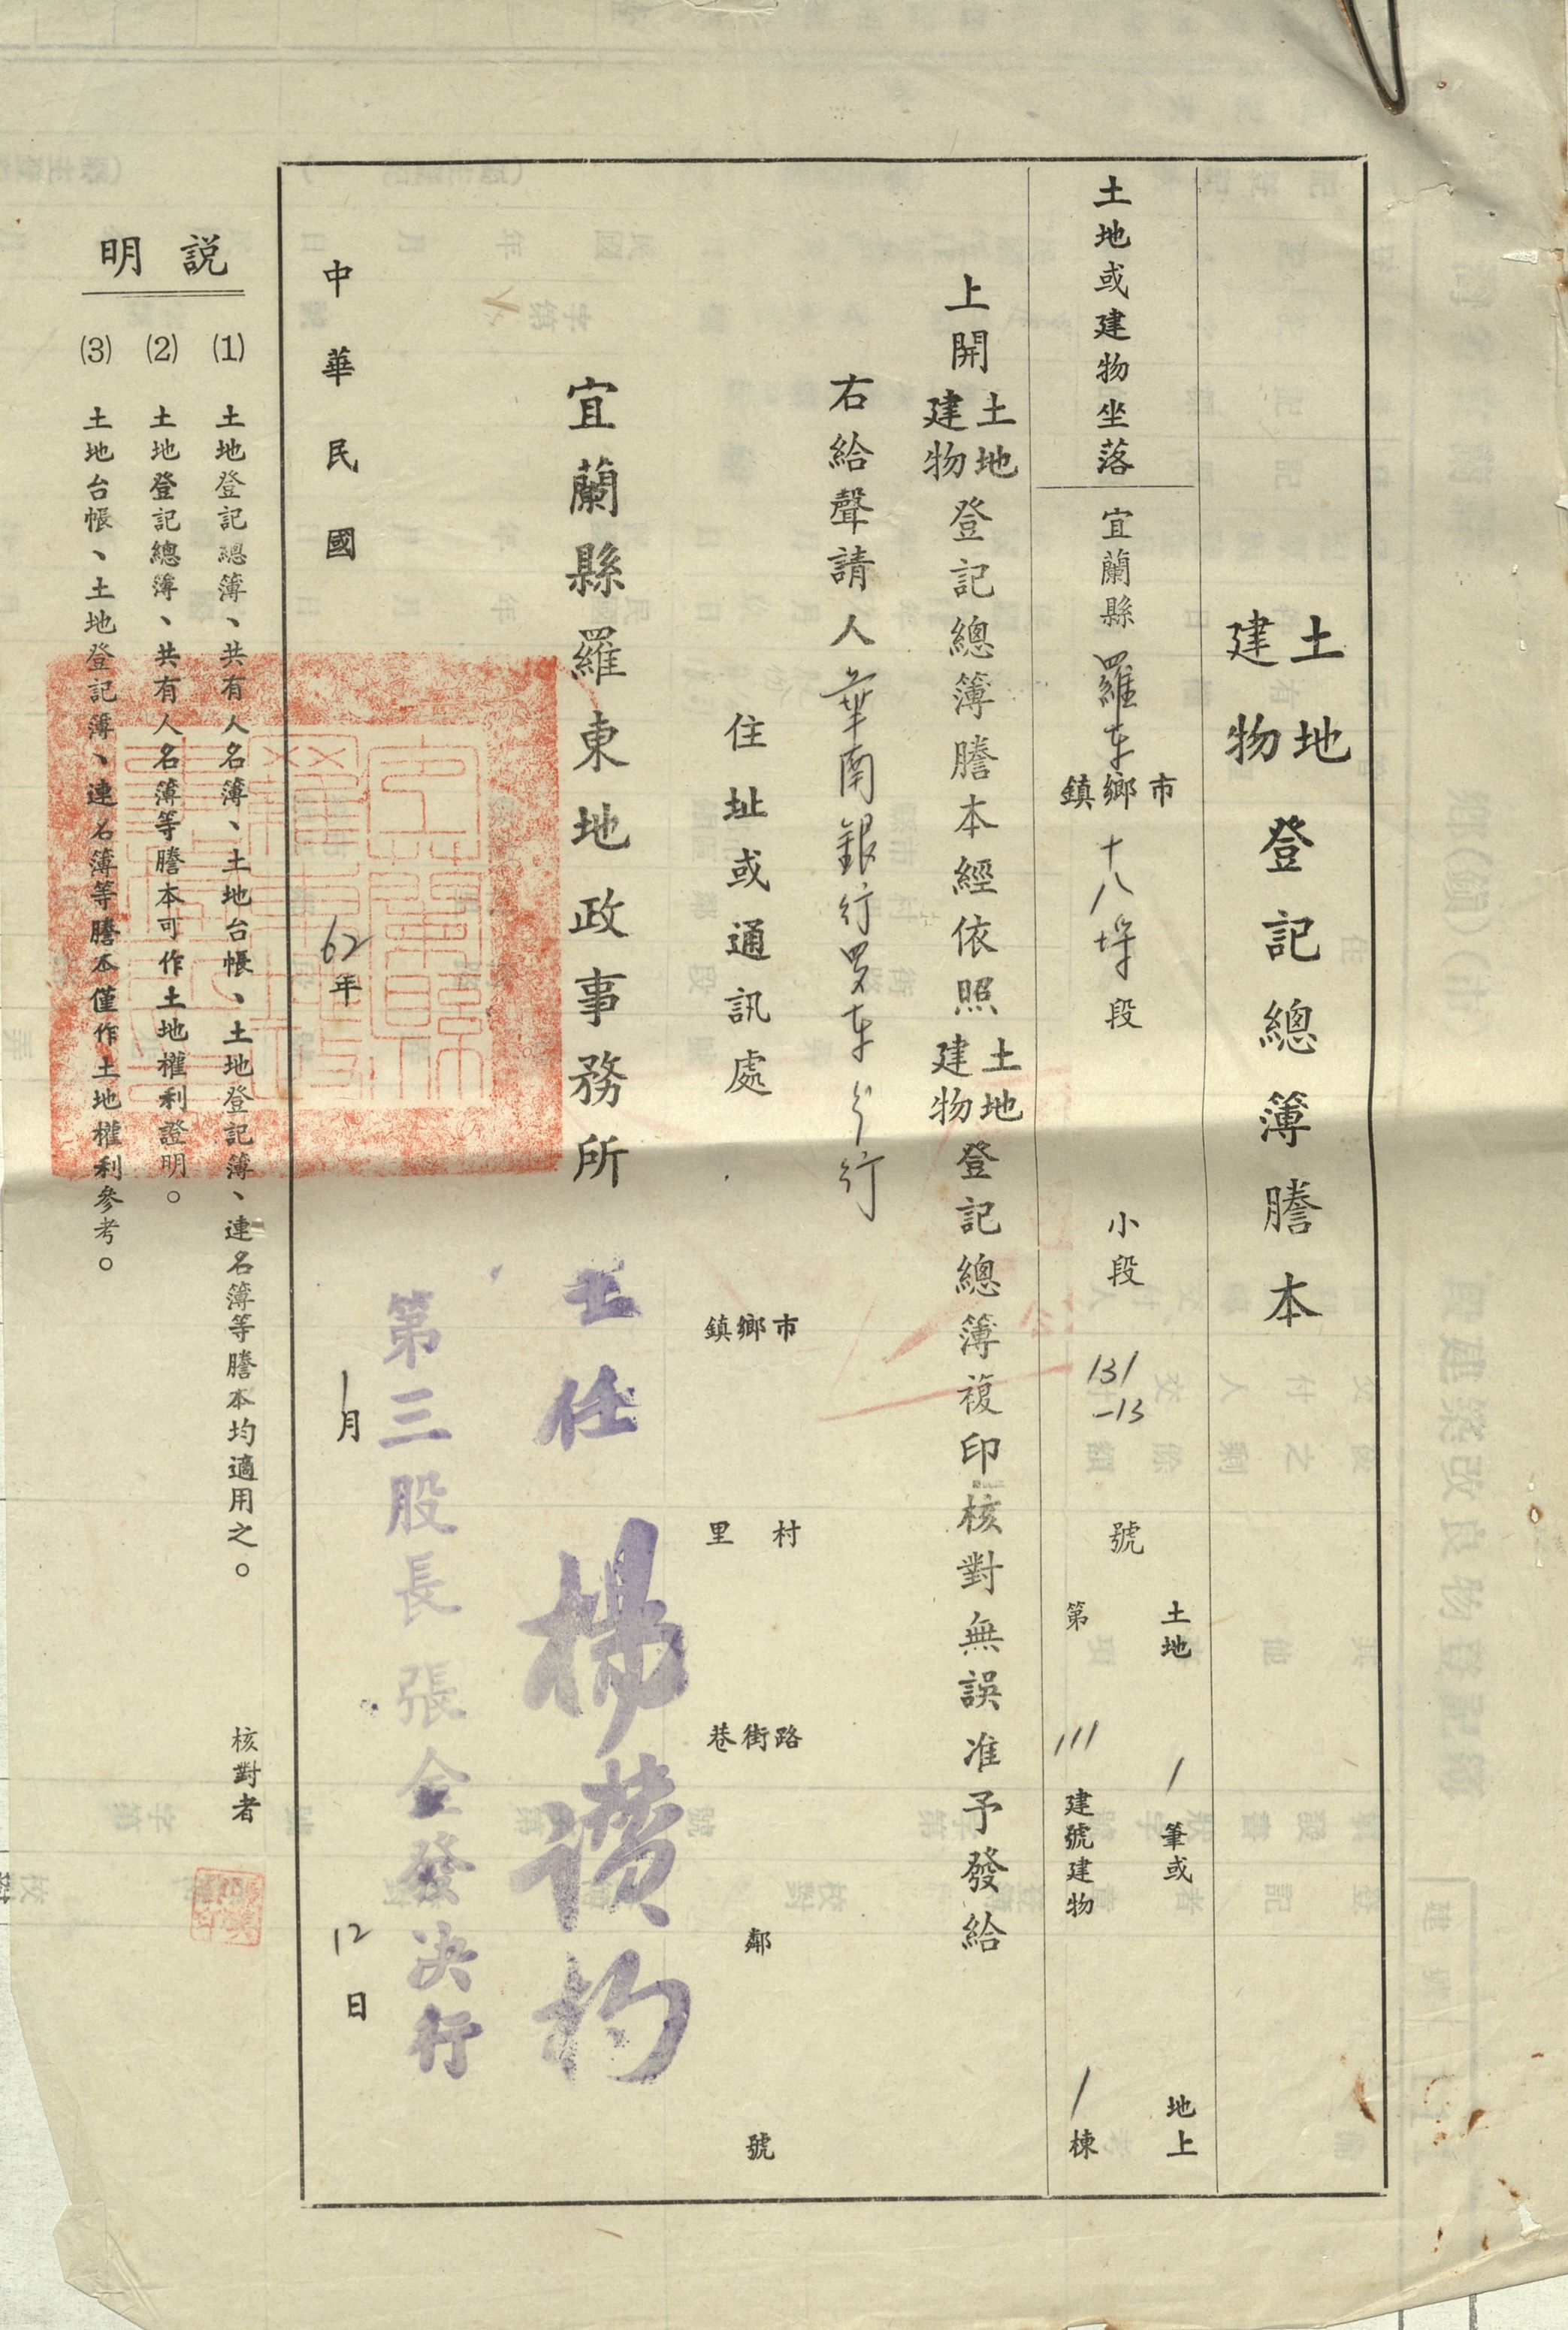 土地建物登記總簿謄本
土地或建物坐落 宜蘭縣 羅东 市鄉鎮 十八埒 段 小段 131-13 號 土地 1 筆或 地上
第 111 建號建物 1 棟
上開土地建物登記總簿謄本經依照土地建物登記總簿複印核對無誤准予發給
右給聲請人 華南銀行罗东分行
住址或通訊處 市鄉鎮 村里 路街巷 鄰 號
宜蘭縣羅東地政事務所 主任 楊讚杓
第三股長張金發決行
中華民國 62年 1月 12日
說明
(1) 土地登記總簿、共有人名簿、土地台帳、土地登記簿、連名簿等謄本均適用之。 核對者
(2) 土地登記總簿、共有人名簿等謄本可作土地權利證明。
(3) 土地台帳、土地登記簿、連名簿等謄本僅作土地權利參考。